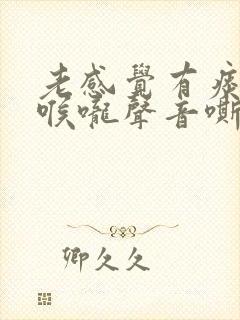 老感覺有痰
喉嚨聲音嘶
卿久久